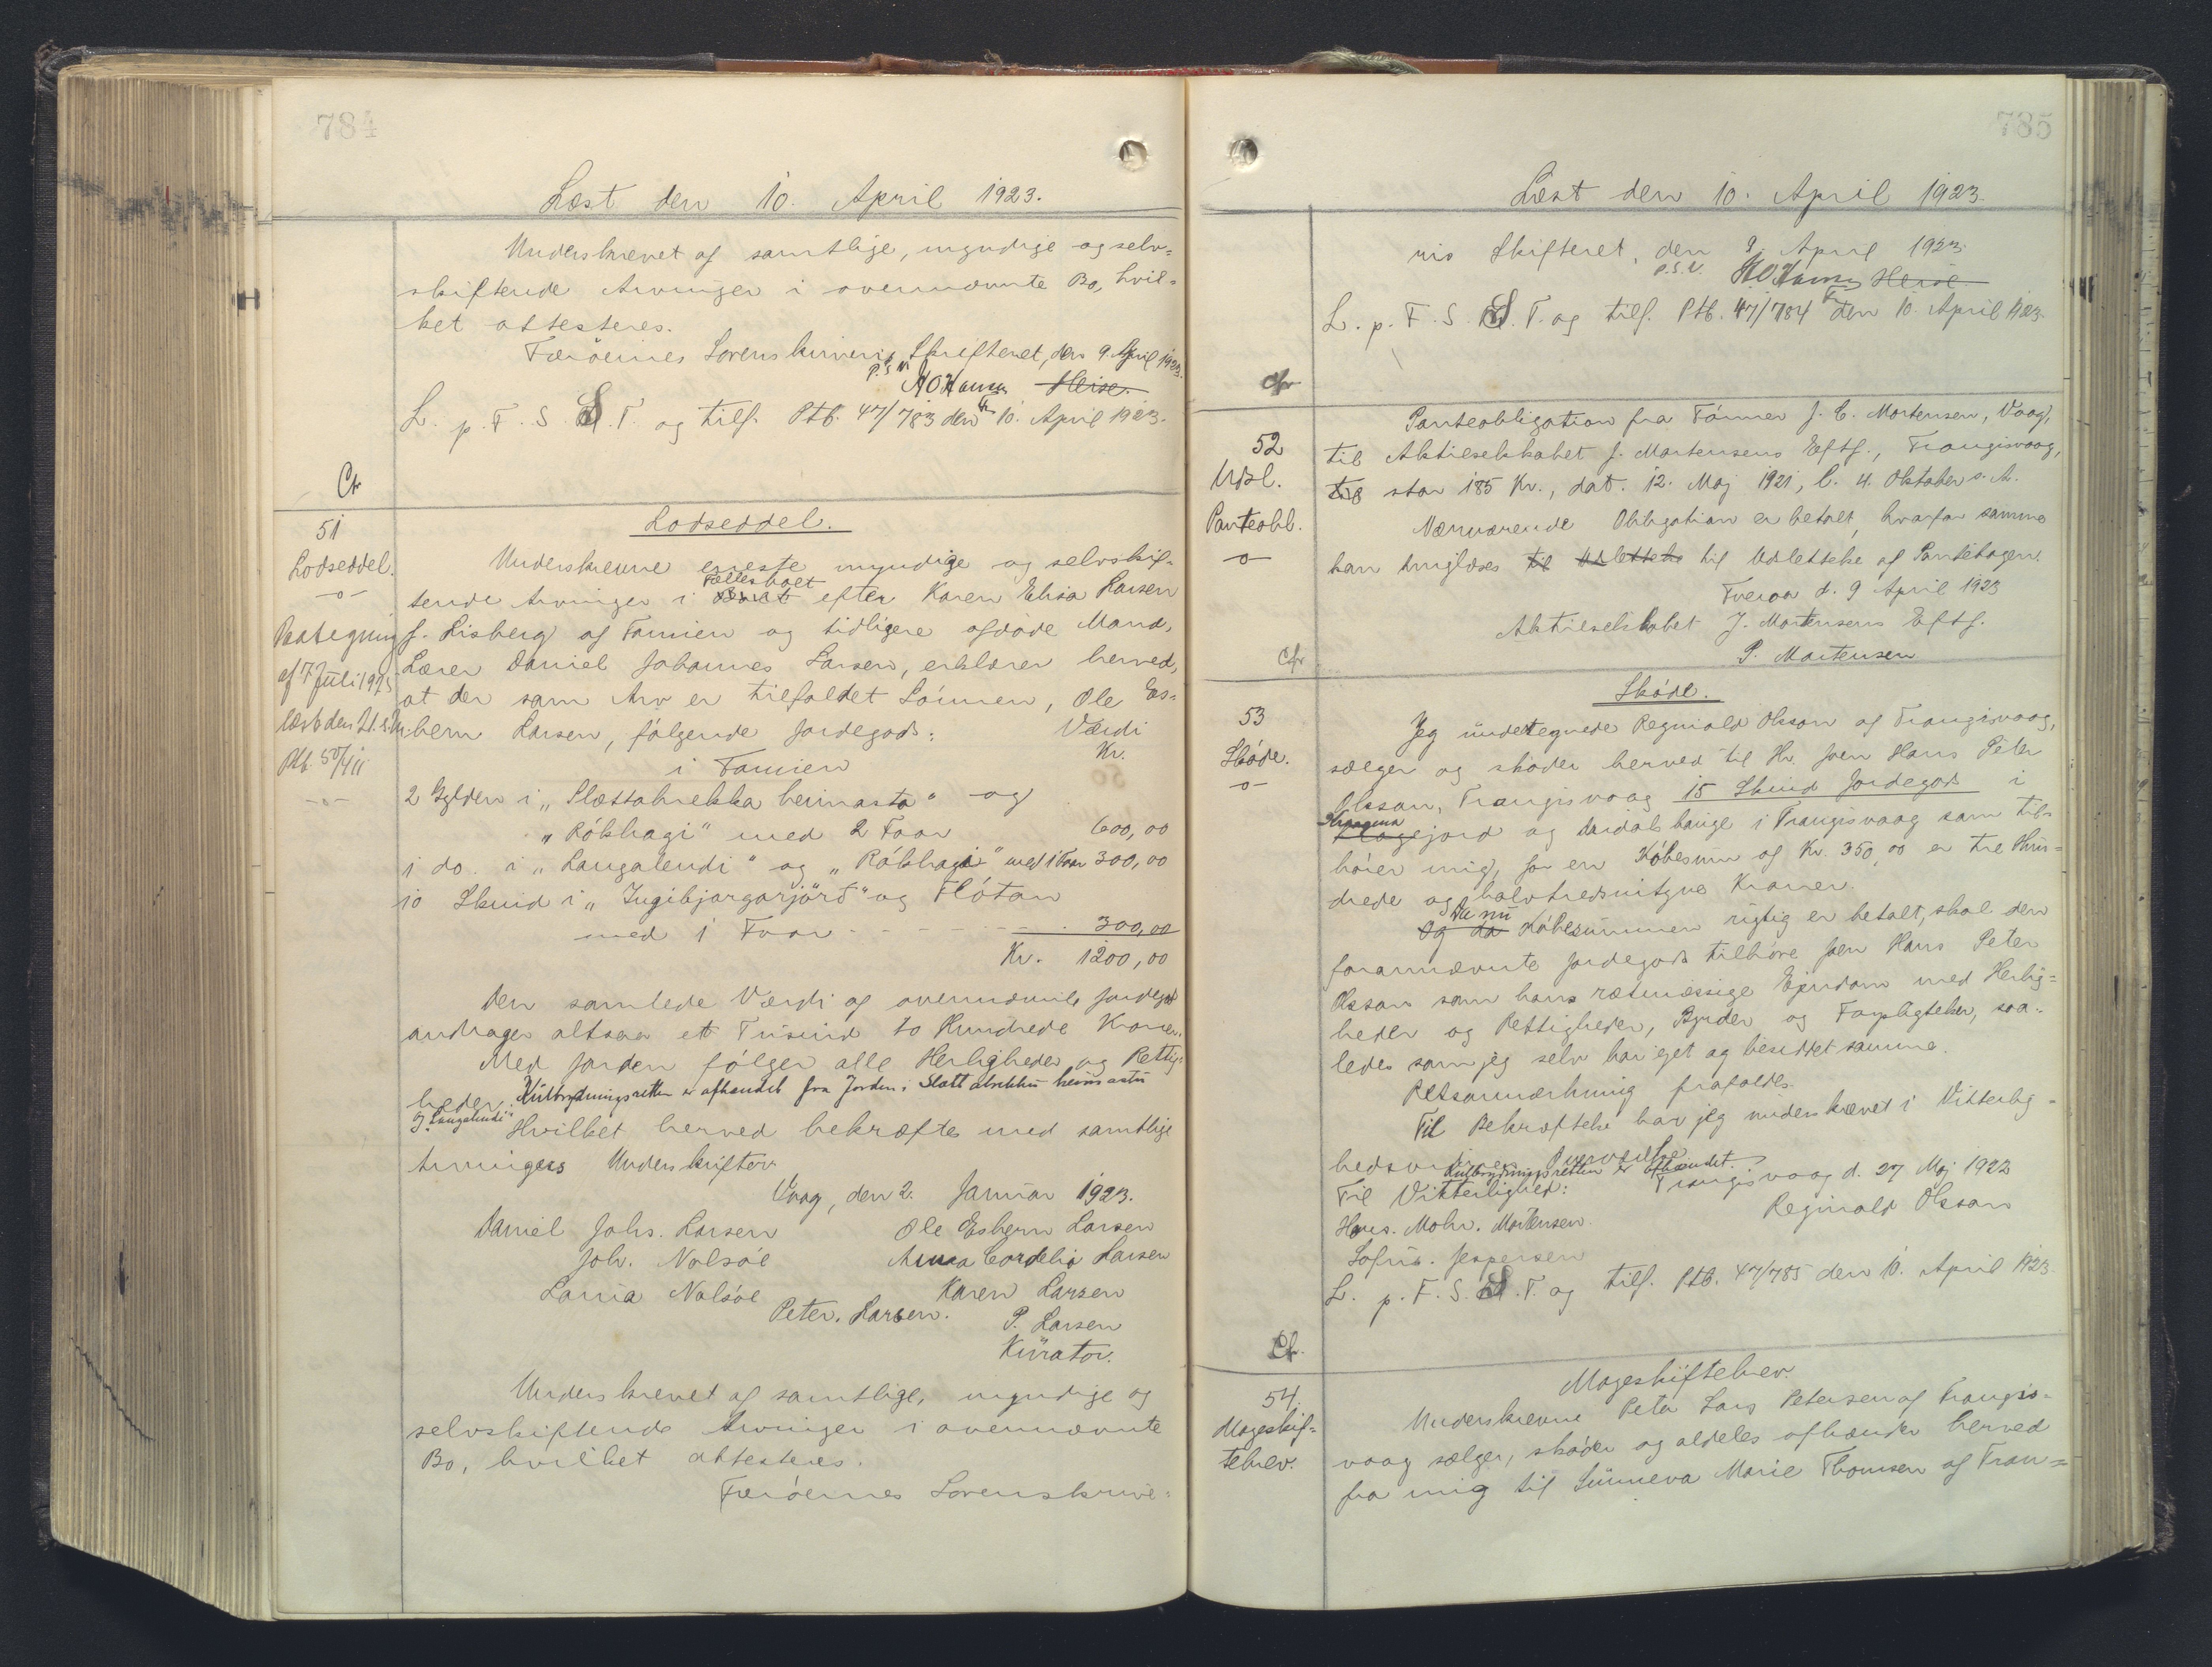 784
Læst den 10. April 1923.
Underskrevet af samtlige, myndige og selv=
skiftende Arvinger i ovennævnte Bo, hvil=
ket attesteres.
Færøernes Sorenskriveri, Skifteret, den 9. April 1923.
P.S.V.
HOHansen Heise.
L. p. F. S. S. T. og tilf. Ptb. 47/783 den 10. April 1923.
Cfr
51
Lodseddel.
-o-
Paategning
af 7 Juli 1925
læst den 21. s. M.
Ptb. 50/411
-o-
Lodseddel.
Underskrevne eneste myndige og selvskif-
tende Arvinger i Boet Fællesboet efter Karen Elisa Larsen
f. Lisberg af Famien og tidligere afdøde Mand,
Lærer Daniel Johannes Larsen, erklærer herved,
at der som Arv er tilfaldet Sønnen, Ole Es=
bern Larsen, følgende Jordegods:
Værdi
i Famien
Kr.
2 Gylden i „Slættabrekka heimasta" og
„Rókhagi" med 2 Faar 600,00
1 do. i „Langalendi" og „Rókhagi" med 1 Faar 300,00
10 Skind i „Ingibjargarjørð" og Flótan
med 1 Faar - - - - - 300,00
Kr. 1200,00
Den samlede Værdi af ovennævnte Jordegods
andrager altsaa et Tusind to Hundrede Kroner.
Med Jorden følger alle Herligheder og Rettig=
heder. Kulbrydningsretten er afhændet fra Jorden i Slættabrekku heimastu
og Langalendi"
Hvilket herved bekræftes med samtlige
Arvingers Underskrifter.
Vaag, den 2. Januar 1923.
Daniel Johs. Larsen Ole Esbern Larsen
Joh. Nolsøe Anna Cordelia Larsen
Lama Nolsøe Karen Larsen
Peter. Larsen. P. Larsen
Kurator.
Underskrevet af samtlige, myndige og
selvskiftende Arvinger i ovennævnte
Bo, hvilket attesteres.
Færøernes Sorenskrive=
785
Læst den 10. April 1923.
ris Skifteret, den 9 April 1923.
P.S.V. HOHansen Heise.
L. p. F. S. S. T. og tilf. Ptb. 47/784 den 10. April 1923.
Cfr
52
Udsl.
Panteobl.
-o-
Panteobligation fra Tømrer J. C. Mortensen, Vaag,
til Aktieselskabet J. Mortensens Eftf., Trangisvaag,
til stor 185 Kr., dat. 12. Maj 1921, l. 4. Oktober s. A.
Nærværende Obligation er betalt, hvorfor samme
kan tinglæses til Udslettelse til Udslettelse af Pantebogen.
Tveraa d. 9 April 1923
Aktieselskabet J. Mortensens Eftf.
P. Mortensen
Cfr
53
Skøde.
-o-
Skøde.
Jeg undertegnede Reginald Olsson af Trangisvaag,
sælger og skøder herved til Hr. Joen Hans Peter
Olsson, Trangisvaag 15 Skind Jordegods i
jord og Dardals hauge i Trangisvaag som til=
hører mig, for en Købesum af Kr. 350,00 er tre Hun=
drede og halvtredsindstyve Kroner.
Og da Da nu Købesummen rigtig er betalt, skal den
forannævnte Jordegods tilhøre Joen Hans Peter
Olsson som hans retmæssige Ejendom med Herlig=
heder og Rettigheder, Byrder og Forpligtelser, saa=
ledes som jeg selv har ejet og besiddet samme.
Retsanmærkning frafaldes.
Til Bekræftelse har jeg underskrevet i Vitterlig=
heds
Kulbrydningsretten er afhændet.
Til Vitterlighed: Trangisvaag d. 27 Maj 1922
Hans. Mohr. Mortensen. Reginald Olsson
Sofus. Jespersen
L. p. F. S. S. T. og tilf. Ptb. 47/785 den 10. April 1923
Cfr.
54.
Mageskif=
tebrev.
Mageskiftebrev.
Underskrevne Peter Lars Petersen af Trangis=
vaag sælger, skøder og aldeles afhænder herved
fra mig til Sunneva Marie Thomsen af Tran=